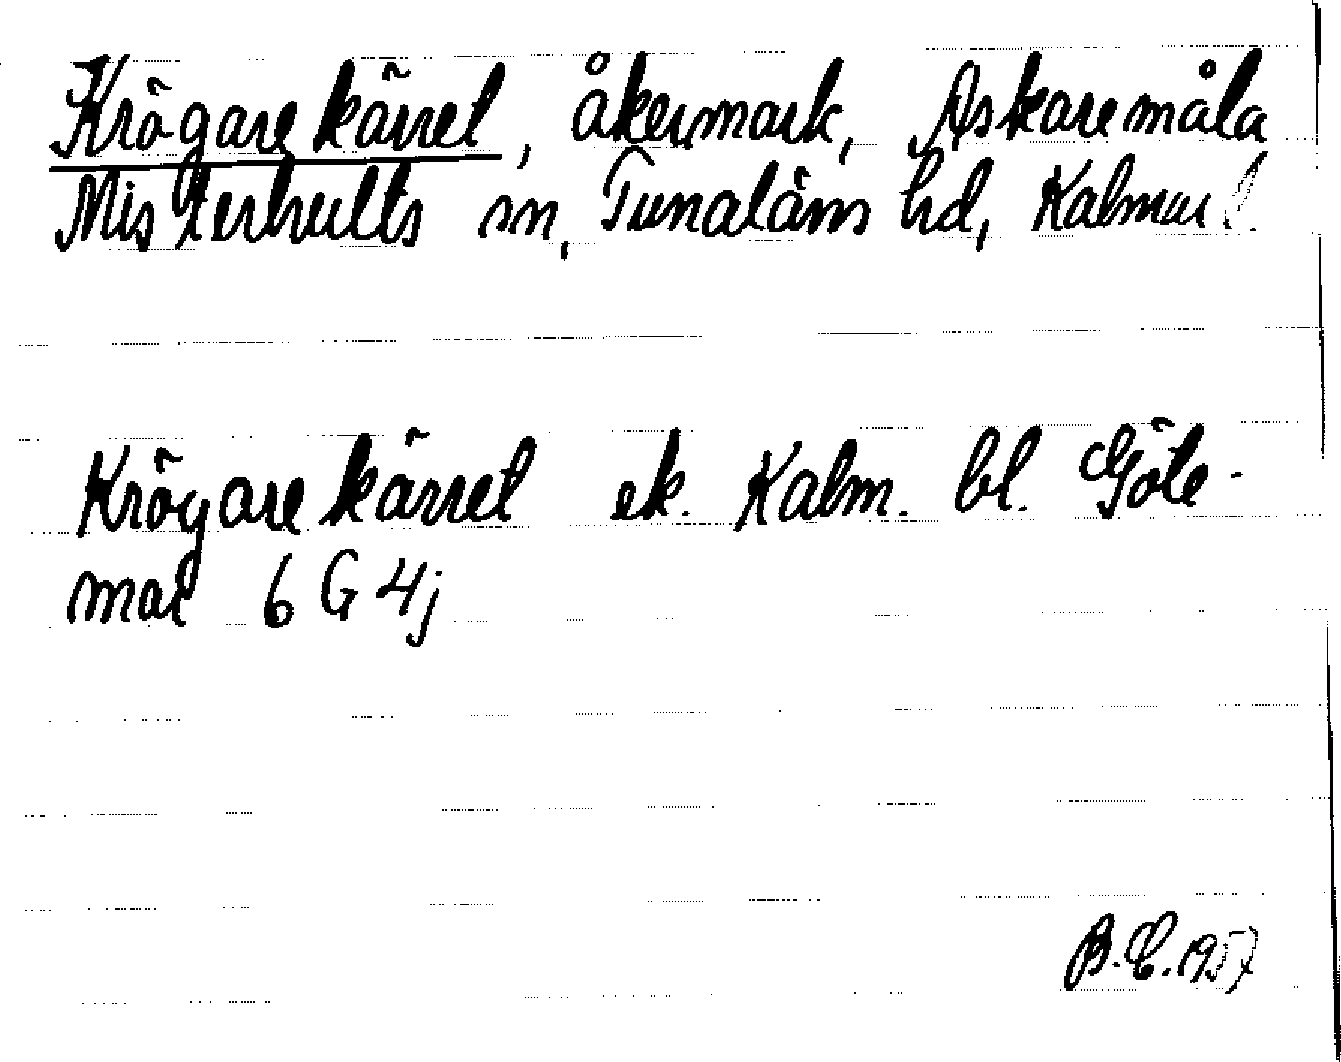 Krögarekärret, åkermark, Askaremåla
Misterhults sn, Tunaläns hd, Kalmar l.
Krögarekärret ek. Kalm. bl. Göte-
mar 6 G 4j
B.E. 1957